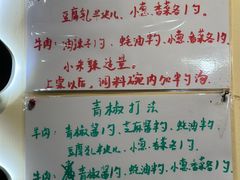 豆腐乳半块儿、小葱、香菜各1勺。
牛肉：油辣子1勺、蚝油半勺、小葱、香菜各1勺、
小米辣适量。
上桌以后，调料碗内加半勺汤
青椒打法
羊肉：青椒酱1勺、芝麻酱1勺、蚝油半勺
豆腐乳半块儿、小葱、香菜各1勺。
牛肉：青椒酱1勺、蚝油半勺、小葱、香菜各1勺